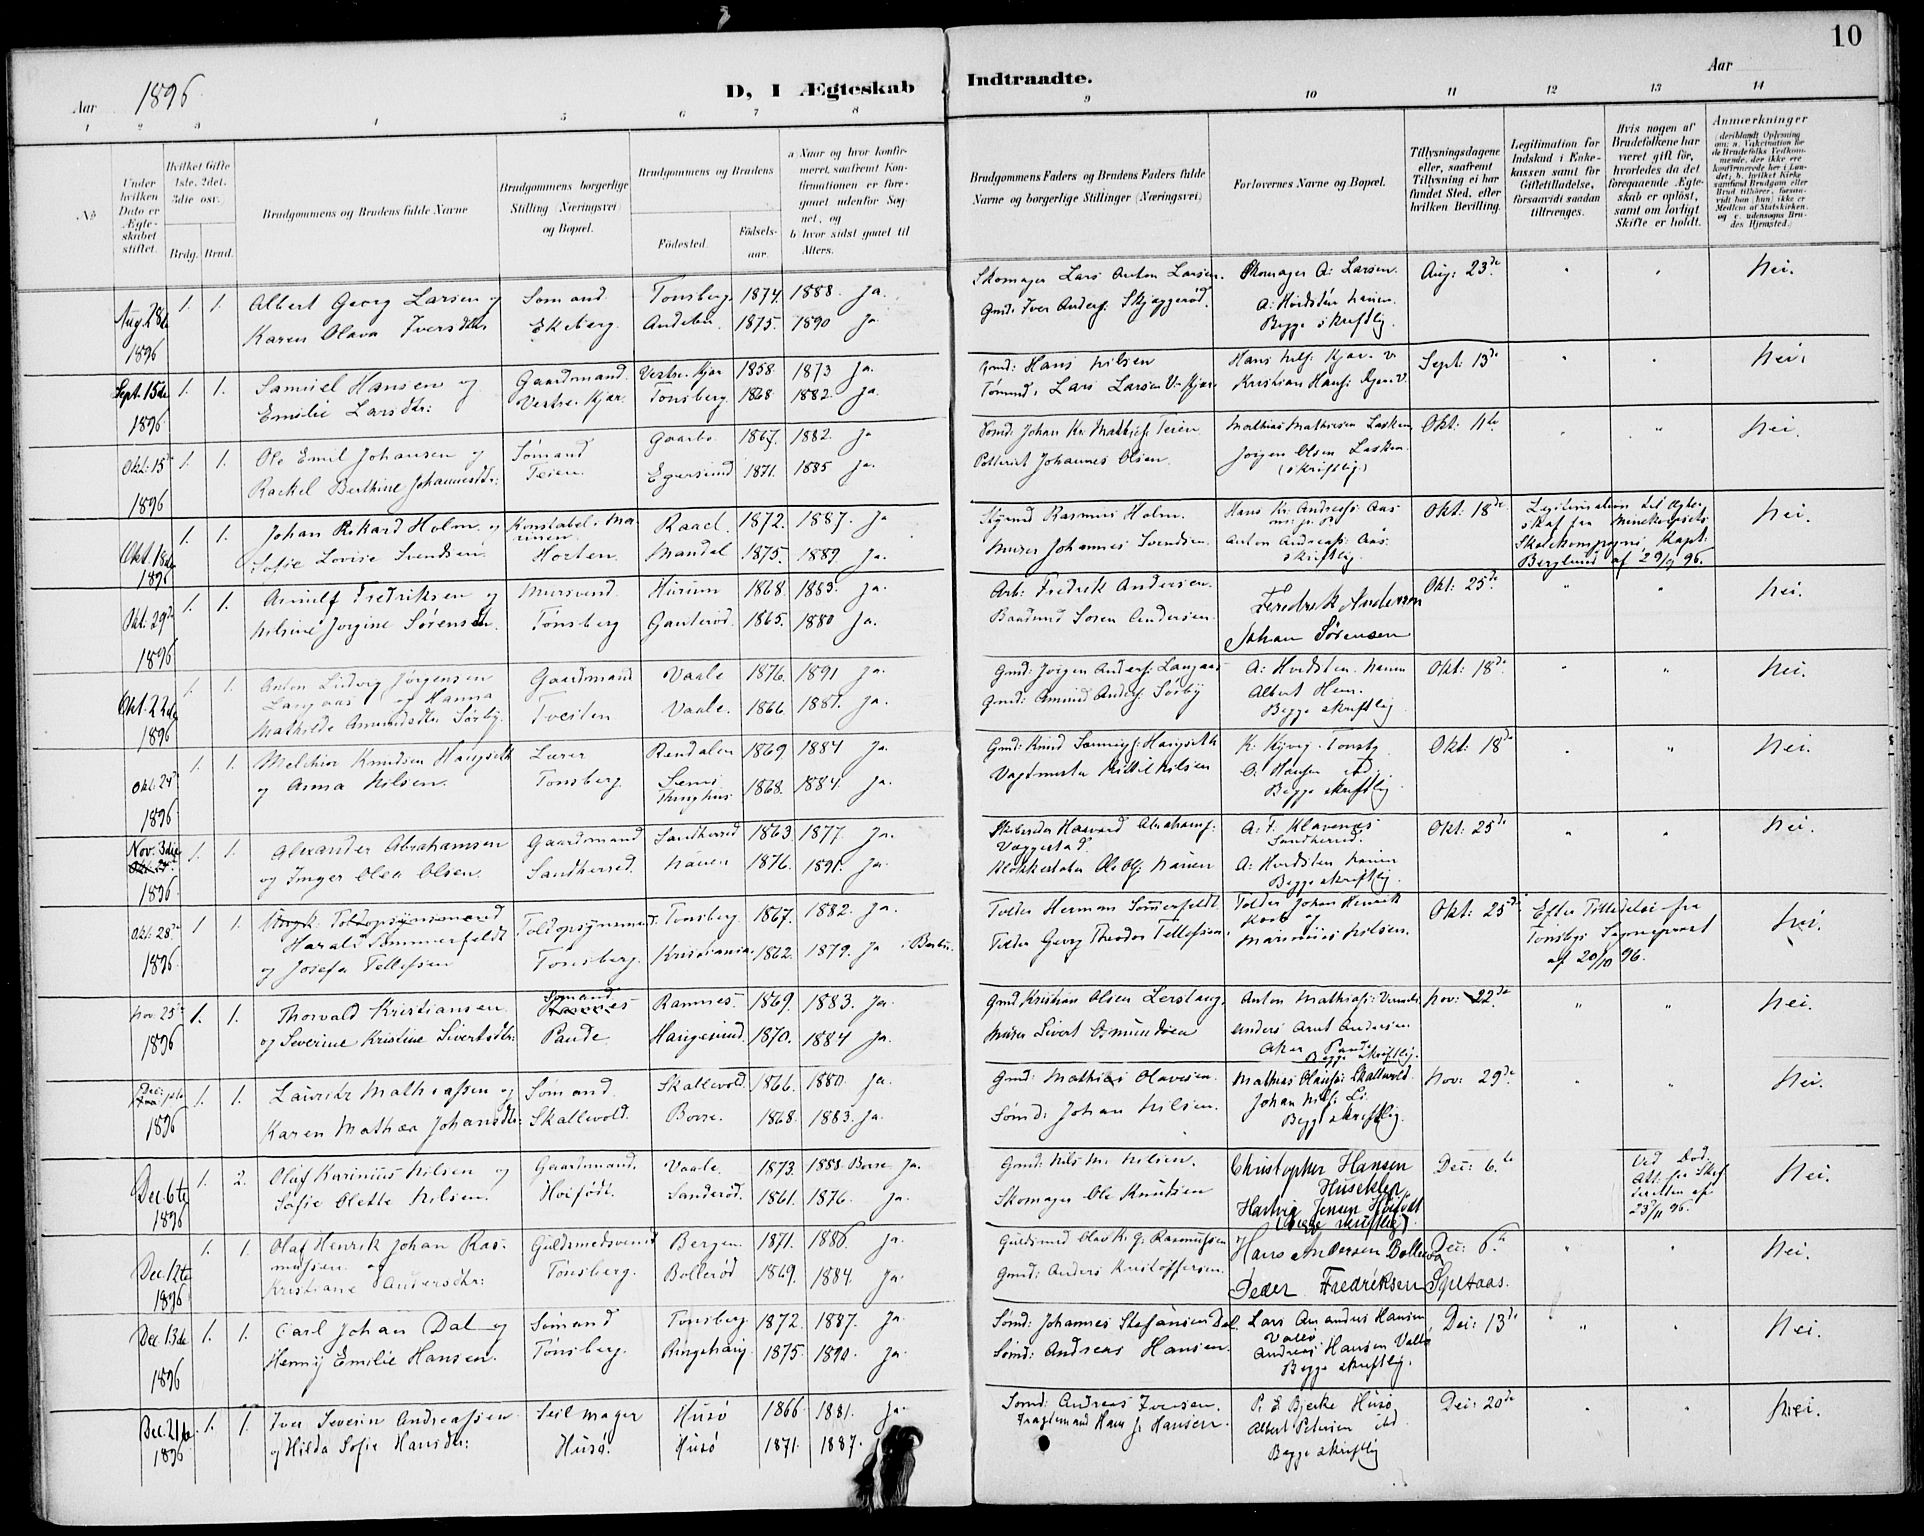 10
Aar 1896
D, I Ægteskab Indtraadte.
Aar
1 2 3 4 5 6 7 8 9 10 11 12 13 14
No
Under hvilken Dato er Ægteskabet stiftet.
Hvilket Gifte 1ste, 2det, 3die osv.
Brdg. Brud.
Brudgommens og Brudens fulde Navne
Brudgommens borgerlige Stilling (Næringsvei) og Bopæl.
Brudgommens og Brudens
Fødested.
Fødselsaar.
a Naar og hvor konfirmeret, saafremt Konfirmationen er foregaaet udenfor Sognet, og
b hvor sidst gaaet til Alters.
Brudgommens Faders og Brudens Faders fulde Navne og borgerlige Stillinger (Næringsvei)
Forlovernes Navne og Bopæl.
Tillysningsdagene eller, saafremt Tillysning ei har fundet Sted, efter hvilken Bevilling.
Legitimation for Indskud i Enkekassen samt for Giftetilladelse, forsaavidt saadan tiltrænges.
Hvis nogen af Brudefolkene har været gift før, hvorledes da det foregaaende Ægteskab er opløst, samt om lovligt Skifte er holdt.
Anmærkninger
Aug. 28de 1896 1. 1. Albert Georg Larsen og Sømand Tønsberg 1874. 1888. Ja. Skomager Lars Anton Larsen. Skomager A: Larsen. Aug: 23de " " Nei.
Karen Olava Iversdtr Ekeberg. Andebu. 1875. 1890 Ja Gmd: Iver Anders: Skjæggerød. A: Hvidsten Nauen.
Begge skriftlig.
Sept. 15de 1896 1. 1. Samuel Hansen og Gaardmand. Vestre Kjær 1858 1873 Ja. Gmd: Hans Nilsen Hans Nils: Kjær. V. Sept: 13de " " Nei.
Emilie Larsdtr: Vestre Kjær. Tønsberg. 1868 1882. Ja. Tømmd. Lars Larsen V. Kjær. Kristian Hans: Kjær. V.
Okt: 15de 1896 1. 1. Ole Emil Johansen og Sømand 1867. 1882. Ja Sømd: Johan Kr. Teien Mathias Mathiesen Okt: 11te " " Nei.
Rackel Berthine Johannesdtr: Teien. Egersund 1871. 1885 Ja. Johannes Olsen. Jørgen Olsen
(skriftlig)
Okt. 18de 1896 1. 1. Johan Rikard Holm og Konstabel i Marinen. Raael. 1872. 1887. Ja Rasmus Holm. Hans Kr. Andreass: Aas Okt: 18de Legitimation til Ægteskab fra Minekorpsets Nei.
Sofie Lovise Svendsen. Horten. Mandal 1875. 1889. Ja. Murer Johannes Svendsen. Anton Andreass: Aas. skriftlig. Skolekompagni Kapt: Berglund af 29/9 96.
Okt. 29de 1896 1. 1. Arnulf Fredriksen og Mursvend. Hurum 1868. 1883. Ja. Arb: Fredrik Andersen. Feredrek Andersen Okt: 25de " " Nei.
Nilsine Jørgine Sørensdtr. Tønsberg Gauterød. 1865. 1880 Ja. Baadmd Søren Andersen. Johan Sørensen
Okt. 22de 1896 1. 1. Anton Ludvig Jørgensen Gaardmand Vaale 1876. 1891 Ja. Gmd: Jørgen Anders: Langaas A: Hvidsten Nauen Okt: 18de " " Nei.
Langaas og Hanna Tveiten Vaale. 1866. 1881. Ja. Gmd: Amund Anders: Sørby Albert Hem.
Mathilde Amundsdtr Sørby. Begge skriftlig.
Okt. 24de 1896 1. 1. Melchior Knudsen Haugseth Lærer Rendalen 1869. 1884 Ja Gmd: Knud Haugseth K: Kjvig. Tønsbg. Okt: 18de " " Nei.
og Anna Nilsen. Tønsberg. Sems Thinghus 1868. 1884. Ja. Vagtmester Kittil Nilsen O. Hansen ibd.
Begge skriftlig.
Nov. 3die 1896 1. 1. Alexander Abrahamsen Gaardmand Sandherred 1863 1877. Ja. Skibsreder Haavard Abrahams: Vøggestad. A. F. Klavenes Sandherred. Okt: 25de " " Nei.
og Inger Olea Olsen. Sandherred. Nauen 1876. 1891. Ja. Klokkestøber Ole Ols: Nauen A: Hvidsten Nauen
Begge skriftlig.
Okt: 28de 1896 1. 1. Ungk. Toldopsynsmand Toldopsynsmd. Tønsberg. 1867. 1882. Ja. Tolder Herman Sømmerfeldt Tolder Johan Henrik Okt: 25de Efter Tilladelse fra Nei.
Harald Sømmerfeldt og Josefa Tellefsen Tønsberg. Kristiania. 1862. 1879. Ja. Tolder Georg Theodor Tellefsen. og Marinius Nilsen. Tønsbergs Sogneprest af 20/10 96.
Nov. 25de 1896 1. 1. Thorvald Kristiansen Sømand Ramnes. 1869. 1883. Ja. Gmd Kristian Olsen Lerstang. Anton Mathias: Nov: 22de " " Nei.
og Severine Kristine Sivertsdtr: Pande. Haugesund. 1870. 1884 Ja. Murer Sivert Osmundsen Anders Arnt Andersen
Aker Pande Begge skriftlig.
1896 1. 1. Lauritz Mathiassen og Sømand. Skallevold. 1866. 1880. Ja. Gmd: Mathias Olavesen. Mathias Olaus: Skallevold. Nov: 29de " " Nei.
Karen Mathea Johansdtr: Skallevold. Borre. 1868. 1883. Ja. Sømd: Johan Nilsen. Johan Nils: Li.
Begge skriftlig.
Dec. 6te 1896 1. 2. Olaf Karinius Nilsen og Gaardmand. Vaale 1873. 1888 Borre Ja. Gmd: Nils Nilsen. Christopher Hansen Husekler. Dec: 6te Ved Død. Att. fra Skifteretten af 23/11 96. Nei.
Sofie Olette Nilsen. Høifødt. Sanderød. 1861. 1876. Ja. Skomager Ole Knudsen Hartvig Jensen Høifødt
(Begge skriftlig)
Dec. 12te 1896 1. 1. Olaf Henrik Johan Rasmussen og Guldsmedsvend Bergen. 1871. 1886. Ja. Guldsmed Olav K. G. Rasmussen Hans Andersen Bollerød Dec: 6te " " Nei.
Kristiane Andersdtr: Tønsberg. Bollerød 1869. 1884. Ja. Gmd: Anders Kristoffersen. Peder Fredriksen Spetaas.
Dec 13de 1896 1. 1. Carl Johan Dal og Sømand Tønsberg 1872. 1887. Ja. Sømd: Johannes Stefansen Dal. Lars Amandus Hansen Valle Dec: 13de " " Nei.
Henny Emilie Hansen. Tønsberg. Ringshaug 1875. 1890. Ja. Sømd: Andreas Hansen. Andreas Hansen Valle
Begge skriftlig.
Dec. 21de 1896 1. 1. Iver Severin Andreassen Seilmager Husø 1866 1881. Ja. Sømd: Andreas Iversen. P. E. Bjerke Husø Dec: 20de " " Nei.
og Hilda Sofie Hansdtr: Husø. Husø 1871. 1887. Fragtemand Hans J. Hansen. Albert Petersen ibd.
Begge skriftlig